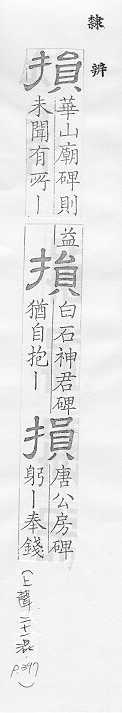 隸辨
損
華山廟碑則
未聞有所｜
損
益
白石神君碑
猶自抱｜
損
唐公房碑
躬｜奉錢
(上聲二十一混 p.397)